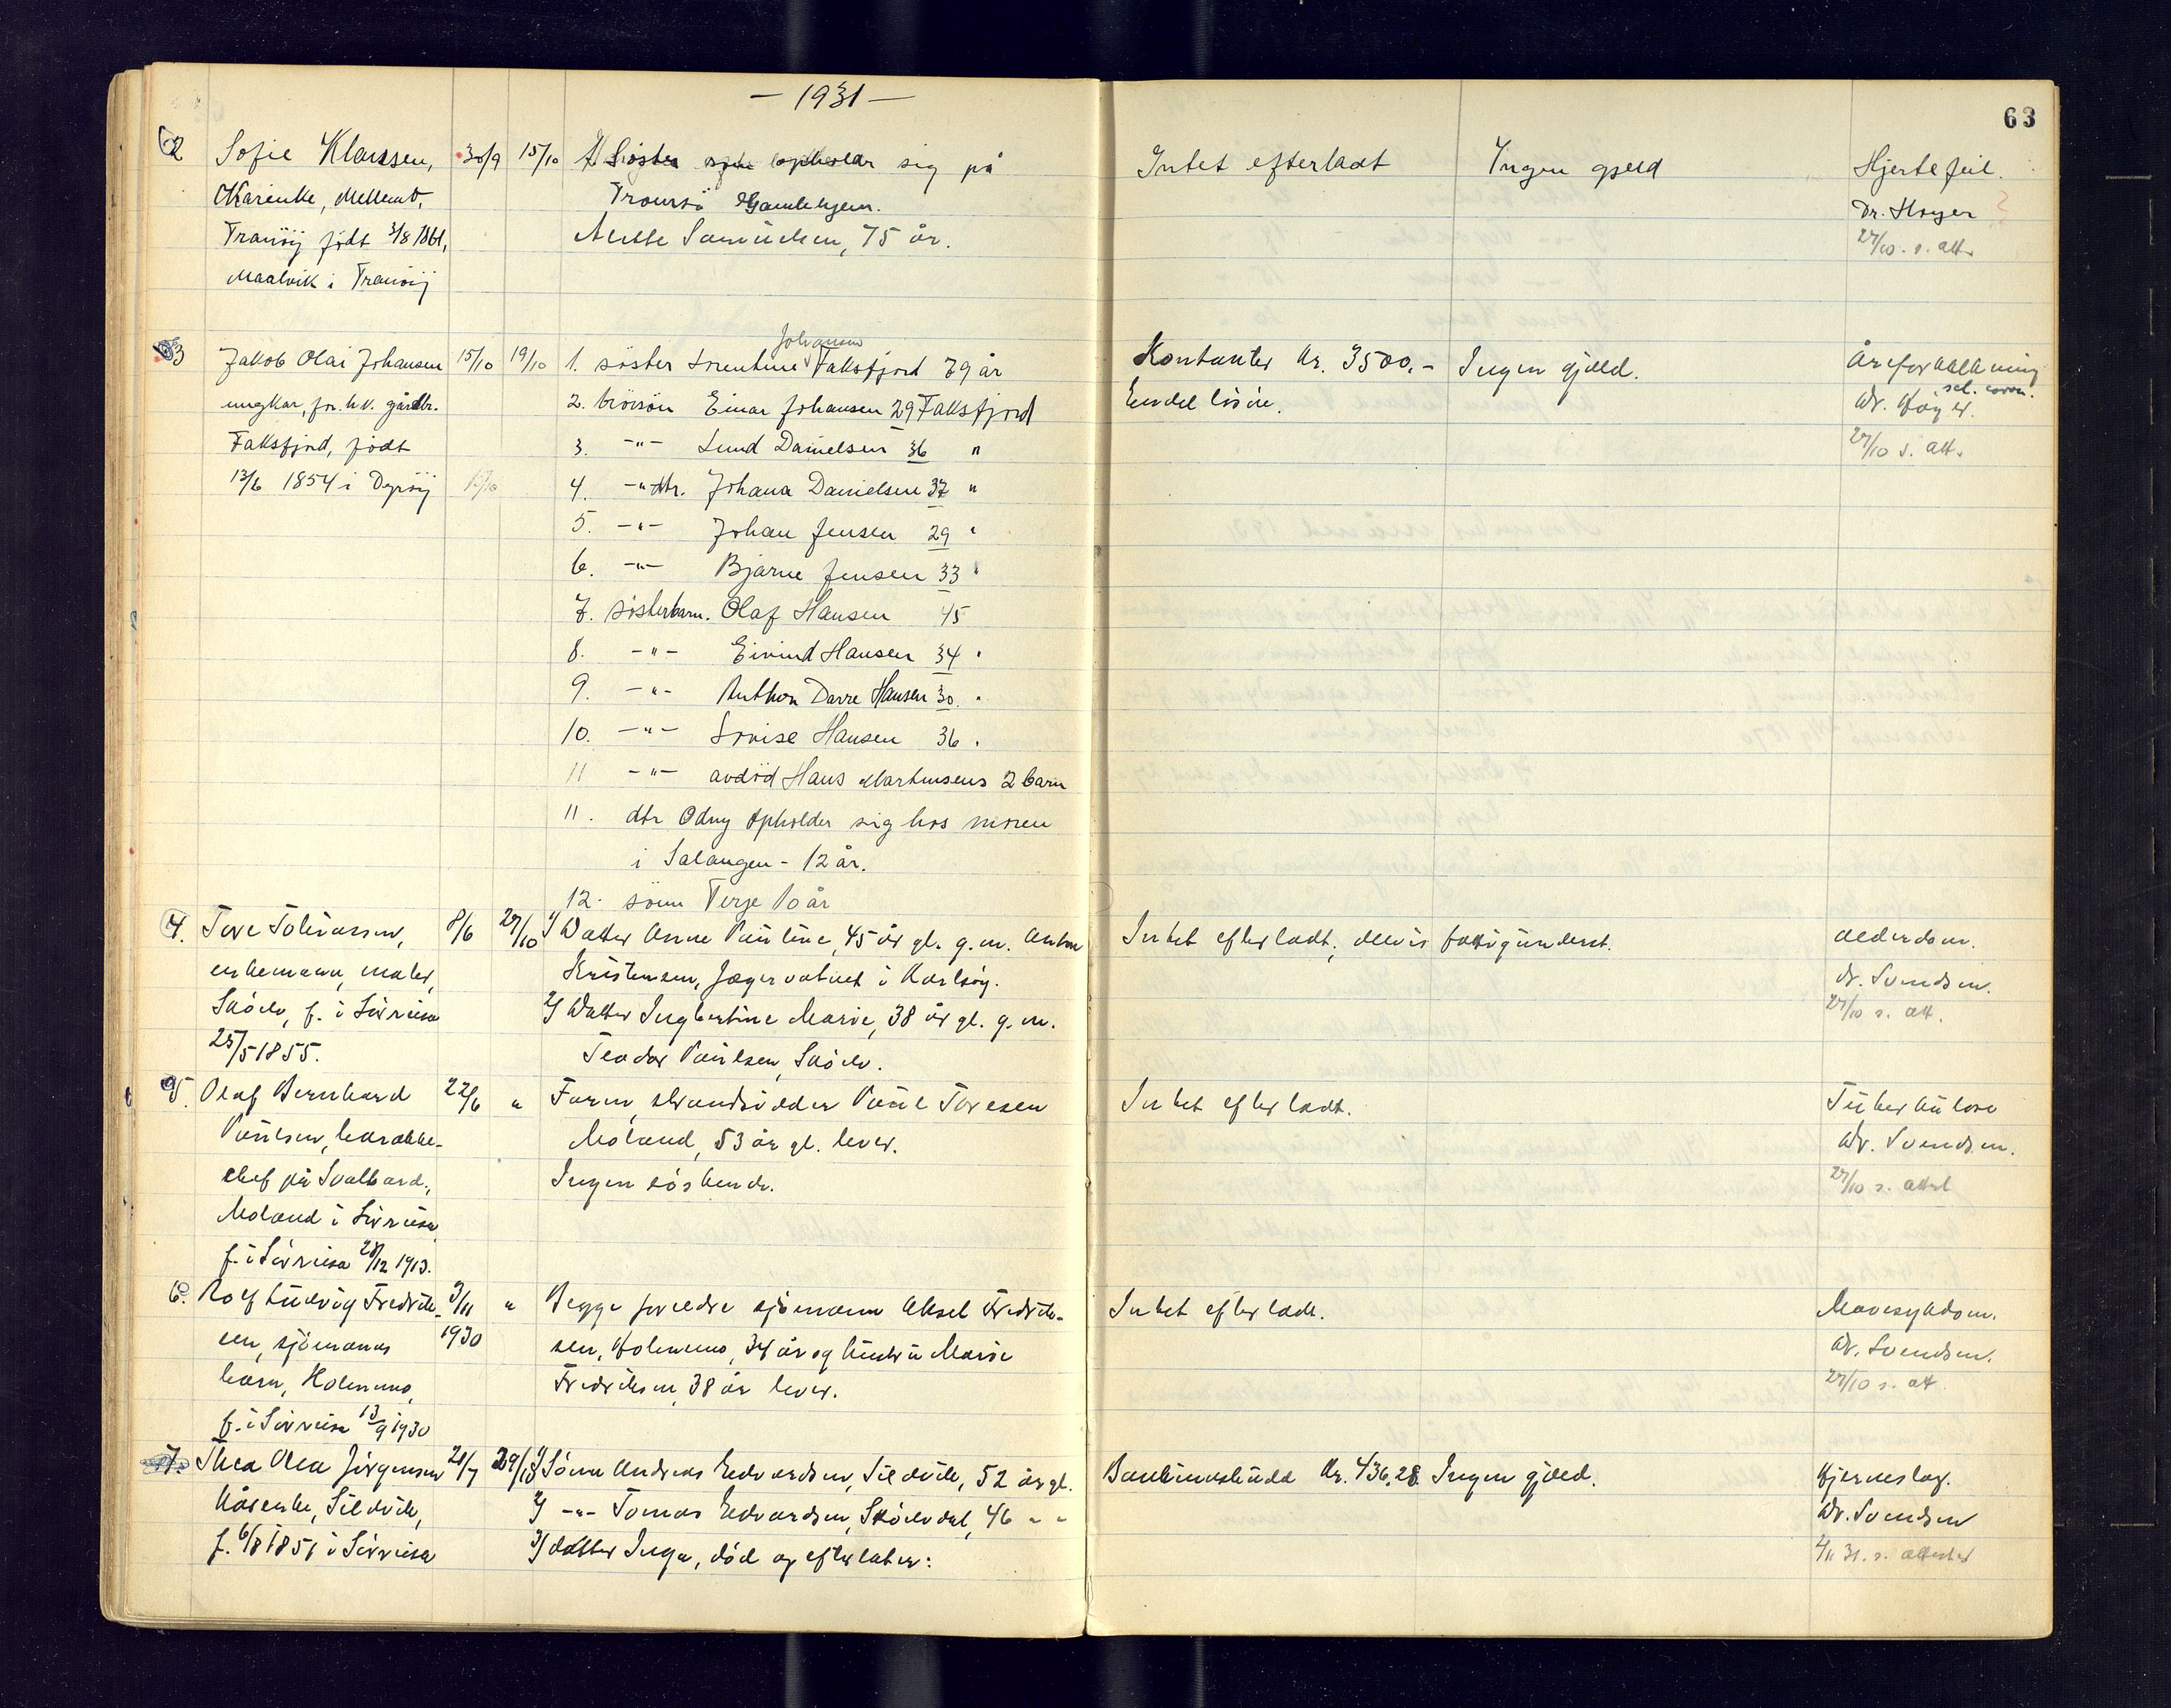 — 1931 —
63
2 Sofie Klaussen, 30/9 15/10 1/ Søster som opholdar sig på Intet efterladt Ingen gjeld Hjertefeil.
Kårenke, Mellemb. Tromsö Gamlehjem. Dr. Høyer
Tranöy født 3/8 1861, Mette Samuelsen, 75 år. 27/10. s. att.
Maalvik i Tranöij
Johansen
3 Jakob Olai Johansen 15/10 19/10 1. söster Lorentine Faksfjord 79 år Kontanter kr. 3500.- Ingen gjeld. Åreforkalkning
ungkar, for. h.v. gårdbr. 2. brorsön Einar Johansen 29 Faksfjord Endel lösöre. scl. coron.
Dr. Höyer.
Faksfjord, født 3. -"- Lund Danielsen 36 " 27/10 s. att.
13/6 1854 i Dyröij 15/10 4. -"- dtr. Johana Danielsen 37 "
5. -"- Johan Jensen 29 "
6. -"- Bjarne Jensen 33 "
7. sösterbarn. Olaf Hansen 45
8. -"- Eivind Hansen 34 "
9. -"- Anthon Darre Hansen 30. "
10. -"- Lovise Hansen 36 "
11 -"- avdöd Hans Martinsens 2 barn
11. dtr Odny opholder sig hos moren
i Salangen - 12 år.
12. sönn Terje 10 år
4. Tore Toliassen, 8/6 27/10 1/ Datter Anne Pauline, 45 år gl. g.m. Anton Intet efterladt, delvis fattigunderst. Alderdom.
enkemann, maler, Kristensen, Jægervatnet i Karlsöy. dr. Svendsen.
Sköelv, f. i Sörreisa 2/ Datter Ingbertine Marie, 38 år gl. g.m. 27/10 s. att.
25/5 1855. Teodor Paulsen, Sköelv.
5. Olaf Bernhard 22/6 " Faren, strandsidder Paul Toresen Intet efterladt. Tuberkulose
Paulsen, barakke- Moland, 53 år gl. lever. Dr. Svendsen.
chef på Svalbard, Ingen söskende. 27/10 s. attest
Moland i Sörreisa
f. i Sörreisa 28/12 1913.
6. Rolf Ludvig Fredrik- 3/11 " Begge foreldre sjömann Aksel Fredrik- Intet efterladt. Mavesykdom.
sen, sjömanns 1930 sen, Holmenes, 34 år og hustru Marie Dr. Svendsen.
barn, Holmenes, Fredriksen, 38 år lever. 27/10 s. att.
f. i Sörreisa 13/9 1930
7. Thea Olea Jörgensen 21/7 29/10 1/ Sönn Andreas Edvardsen, Sildvik, 52 år gl. Bankinnskudd kr. 436,28 Ingen gjeld. Hjerneslag.
kårenke, Sildvik, 2/ -"- Tomas Edvardsen, Sköelvdal, 46 " " Dr. Svendsen
f. 6/8 1851 i Sörreisa 3/ datter Inga, död og efterlater: 4/11 31. s. attester